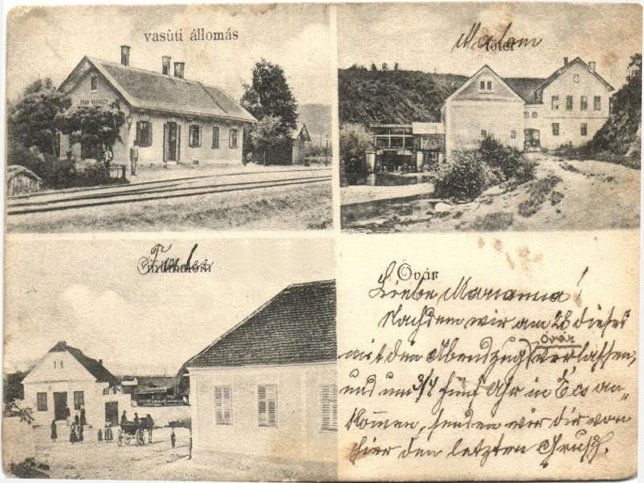 vasúti állomás
Malom
Hotel
Falu
Óvár
Liebe Marianna!
Nachdem wir am 28 dieses
mit den Abendzug Óvár verlassen,
und um 3/4 fünf Uhr in Ecs an-
kommen, senden wir dir von
hier den letzten Gruß.